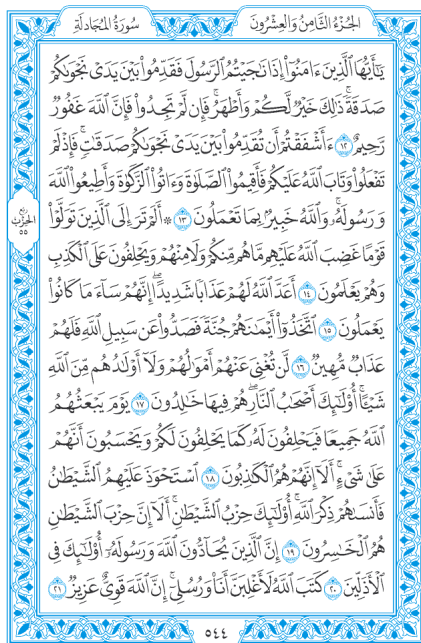 الجُزْءُ الثَّامِنُ وَالعِشْرُونَ
سُورَةُ المُجَادلَةِ
يَٰٓأَيُّهَا ٱلَّذِينَ ءَامَنُوٓاْ إِذَا نَٰجَيۡتُمُ ٱلرَّسُولَ فَقَدِّمُواْ بَيۡنَ يَدَيۡ نَجۡوَىٰكُمۡ
صَدَقَةٗۚ ذَٰلِكَ خَيۡرٞ لَّكُمۡ وَأَطۡهَرُۚ فَإِن لَّمۡ تَجِدُواْ فَإِنَّ ٱللَّهَ غَفُورٞ
رَّحِيمٌ ١٢ ءَأَشۡفَقۡتُمۡ أَن تُقَدِّمُواْ بَيۡنَ يَدَيۡ نَجۡوَىٰكُمۡ صَدَقَٰتٖۚ فَإِذۡ لَمۡ
تَفۡعَلُواْ وَتَابَ ٱللَّهُ عَلَيۡكُمۡ فَأَقِيمُواْ ٱلصَّلَوٰةَ وَءَاتُواْ ٱلزَّكَوٰةَ وَأَطِيعُواْ ٱللَّهَ
وَرَسُولَهُۥۚ وَٱللَّهُ خَبِيرُۢ بِمَا تَعۡمَلُونَ ١٣ ۞ أَلَمۡ تَرَ إِلَى ٱلَّذِينَ تَوَلَّوۡاْ
قَوۡمًا غَضِبَ ٱللَّهُ عَلَيۡهِم مَّا هُم مِّنكُمۡ وَلَا مِنۡهُمۡ وَيَحۡلِفُونَ عَلَى ٱلۡكَذِبِ
وَهُمۡ يَعۡلَمُونَ ١٤ أَعَدَّ ٱللَّهُ لَهُمۡ عَذَابٗا شَدِيدًاۖ إِنَّهُمۡ سَآءَ مَا كَانُواْ
يَعۡمَلُونَ ١٥ ٱتَّخَذُوٓاْ أَيۡمَٰنَهُمۡ جُنَّةٗ فَصَدُّواْ عَن سَبِيلِ ٱللَّهِ فَلَهُمۡ
عَذَابٞ مُّهِينٞ ١٦ لَّن تُغۡنِيَ عَنۡهُمۡ أَمۡوَٰلُهُمۡ وَلَآ أَوۡلَٰدُهُم مِّنَ ٱللَّهِ
شَيۡـًٔاۚ أُوْلَٰٓئِكَ أَصۡحَٰبُ ٱلنَّارِۖ هُمۡ فِيهَا خَٰلِدُونَ ١٧ يَوۡمَ يَبۡعَثُهُمُ
ٱللَّهُ جَمِيعٗا فَيَحۡلِفُونَ لَهُۥ كَمَا يَحۡلِفُونَ لَكُمۡ وَيَحۡسَبُونَ أَنَّهُمۡ
عَلَىٰ شَيۡءٍۚ أَلَآ إِنَّهُمۡ هُمُ ٱلۡكَٰذِبُونَ ١٨ ٱسۡتَحۡوَذَ عَلَيۡهِمُ ٱلشَّيۡطَٰنُ
فَأَنسَىٰهُمۡ ذِكۡرَ ٱللَّهِۚ أُوْلَٰٓئِكَ حِزۡبُ ٱلشَّيۡطَٰنِۚ أَلَآ إِنَّ حِزۡبَ ٱلشَّيۡطَٰنِ
هُمُ ٱلۡخَٰسِرُونَ ١٩ إِنَّ ٱلَّذِينَ يُحَآدُّونَ ٱللَّهَ وَرَسُولَهُۥٓ أُوْلَٰٓئِكَ فِي
ٱلۡأَذَلِّينَ ٢٠ كَتَبَ ٱللَّهُ لَأَغۡلِبَنَّ أَنَا۠ وَرُسُلِيٓۚ إِنَّ ٱللَّهَ قَوِيٌّ عَزِيزٞ ٢١
الحِزْبُ
٥٥
٥٤٤